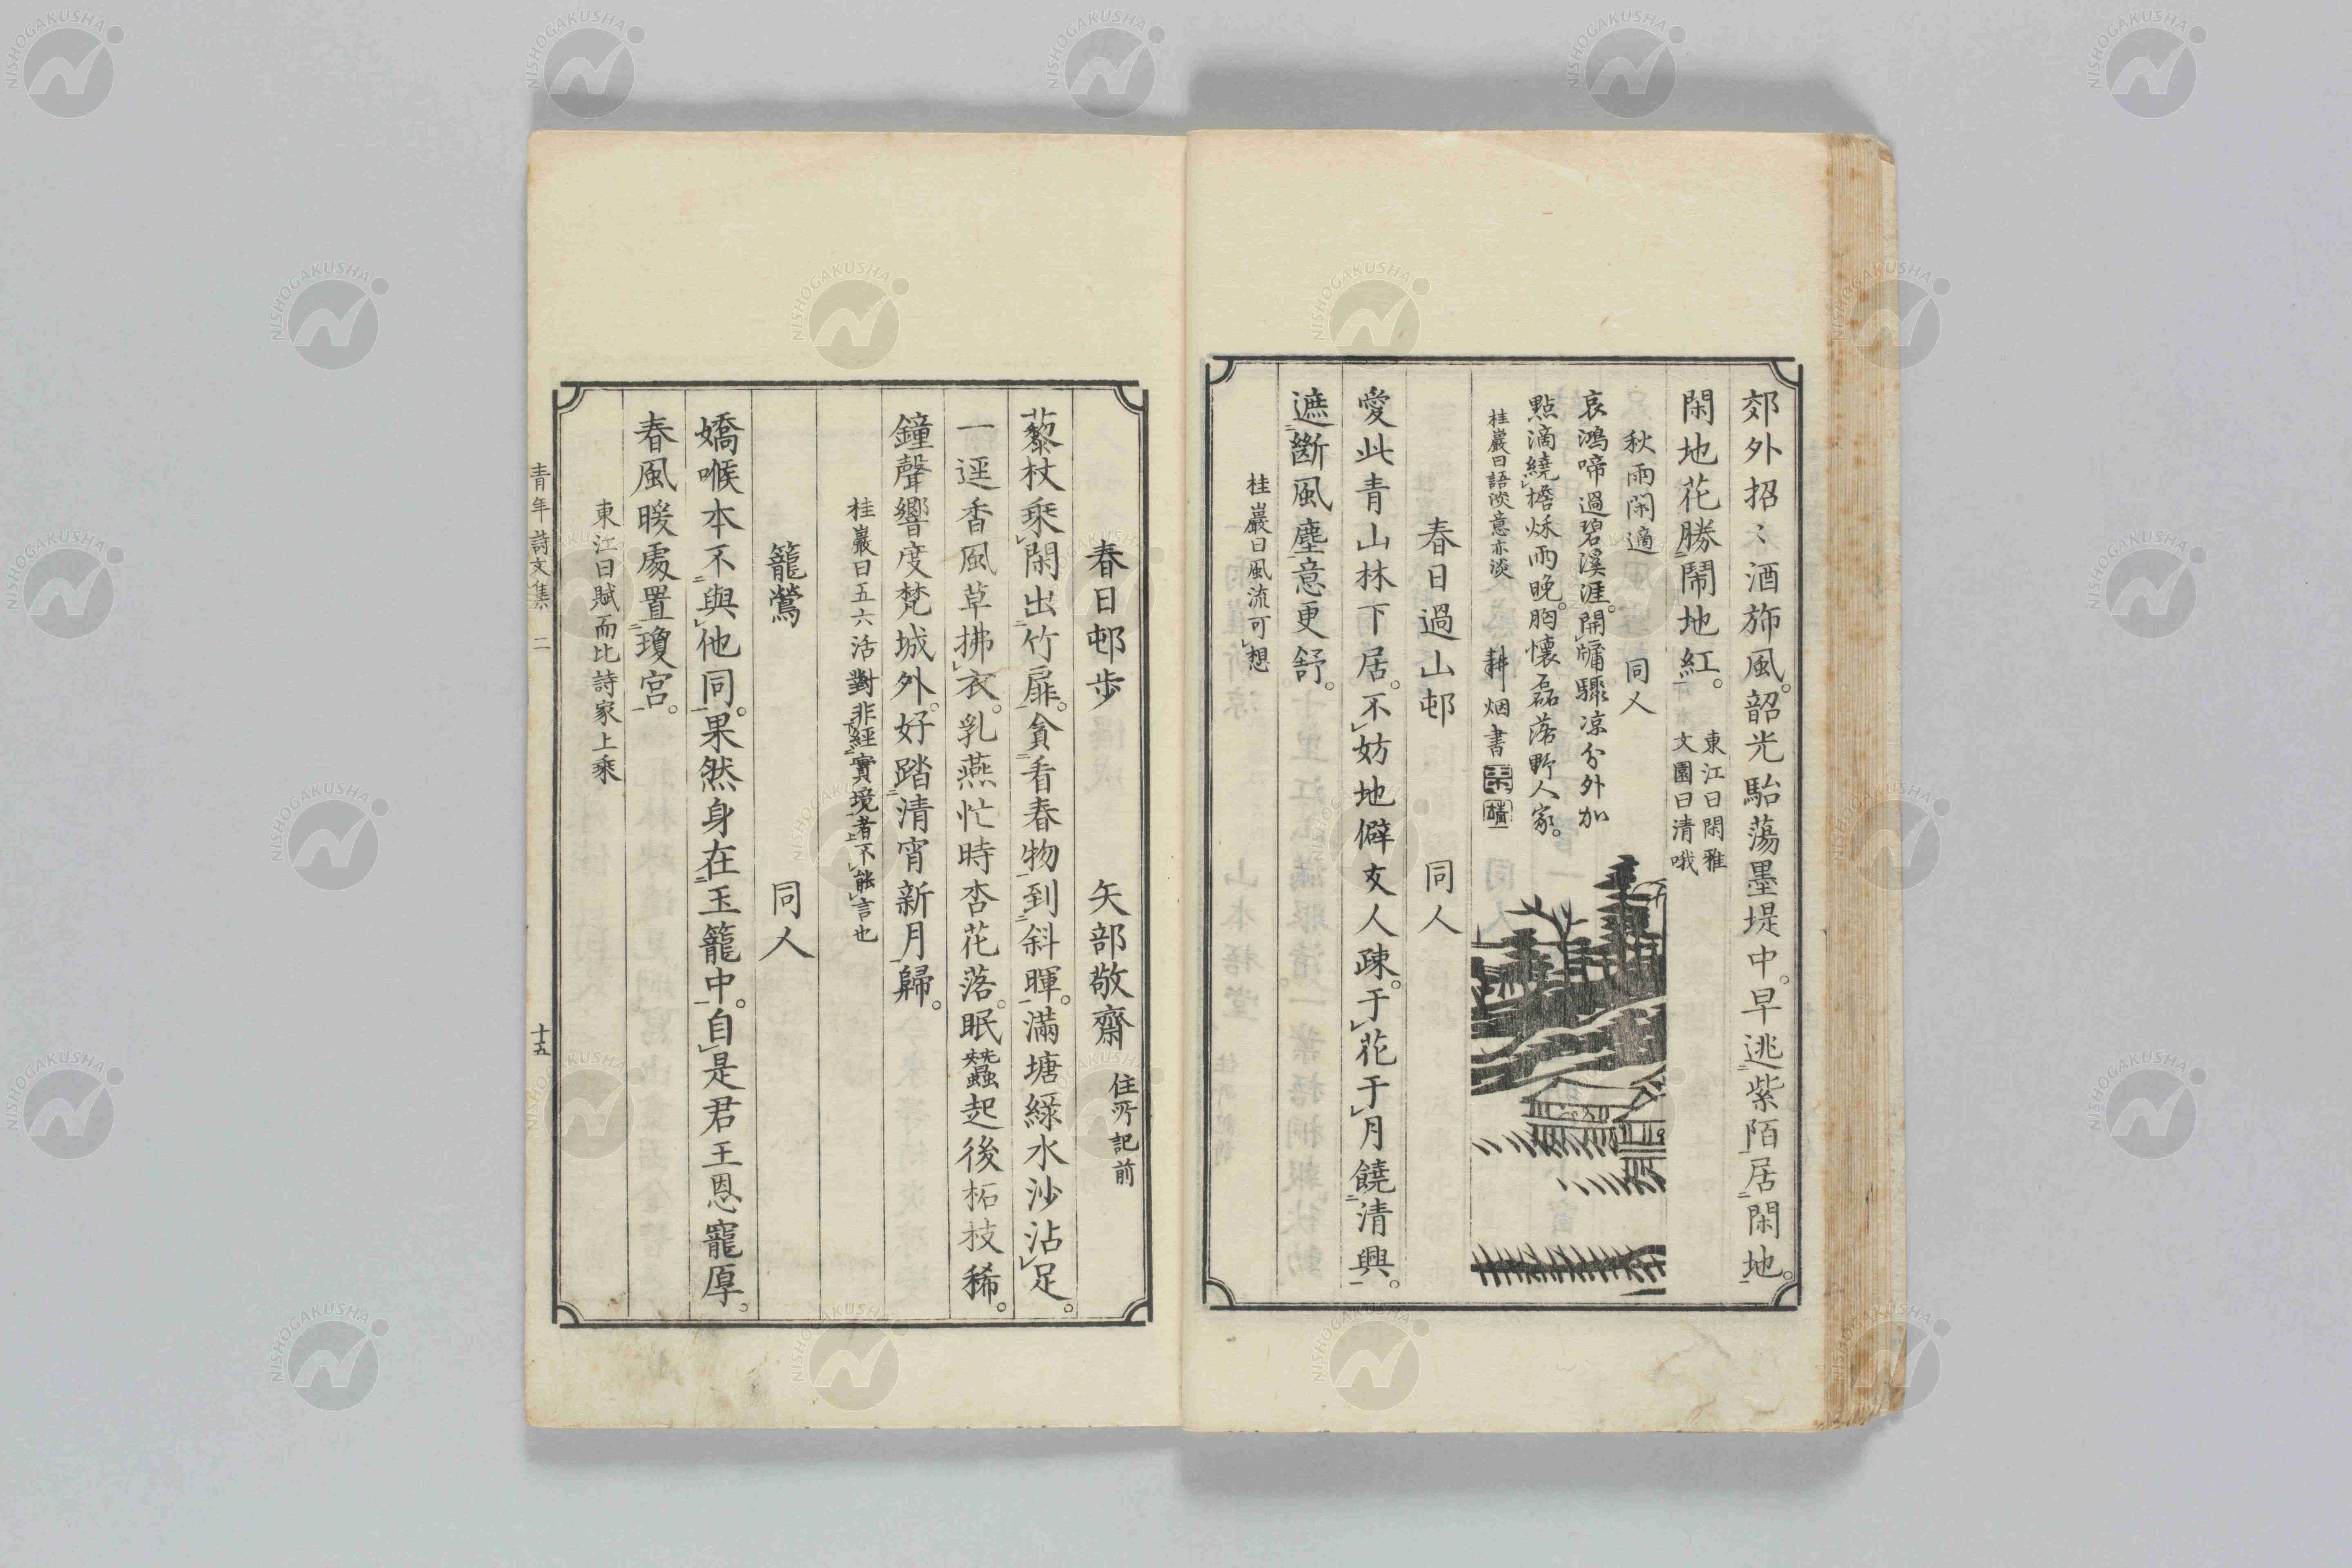 郊外招〻酒斾風。韶光駘蕩墨堤中。早逃紫陌居閑地。
閑地花勝鬧地紅。
東江曰閑雅
文園曰清哦
秋雨閑適 同人
哀鴻啼過碧溪涯。開牗驟凉分外加
點滴繞檐秌雨晚。胸懷磊落野人家。
桂巖曰語淡意亦淡
耕烟書
春日過山邨 同人
愛此青山林下居。不妨地僻友人疎。于花于月饒清興。
遮斷風塵意更舒。
桂巖曰風流可想
春日邨步 矢部敬齋 住所記前
藜杖乘閑出竹扉。貪看春物到斜暉。滿塘綠水沙沾足。
一逕香風草拂衣。乳燕忙時杏花落。眠蠶起後柘枝稀。
鐘聲響度梵城外。好踏清宵新月歸。
桂巖曰五六活對非經實境者不能言也
籠鶯 同人
嬌喉本不與他同。果然身在玉籠中。自是君王恩寵厚。
春風暖處置瓊宮。
東江曰賦而比詩家上乘
青年詩文集 二 十五
NISHOGAKUSHA